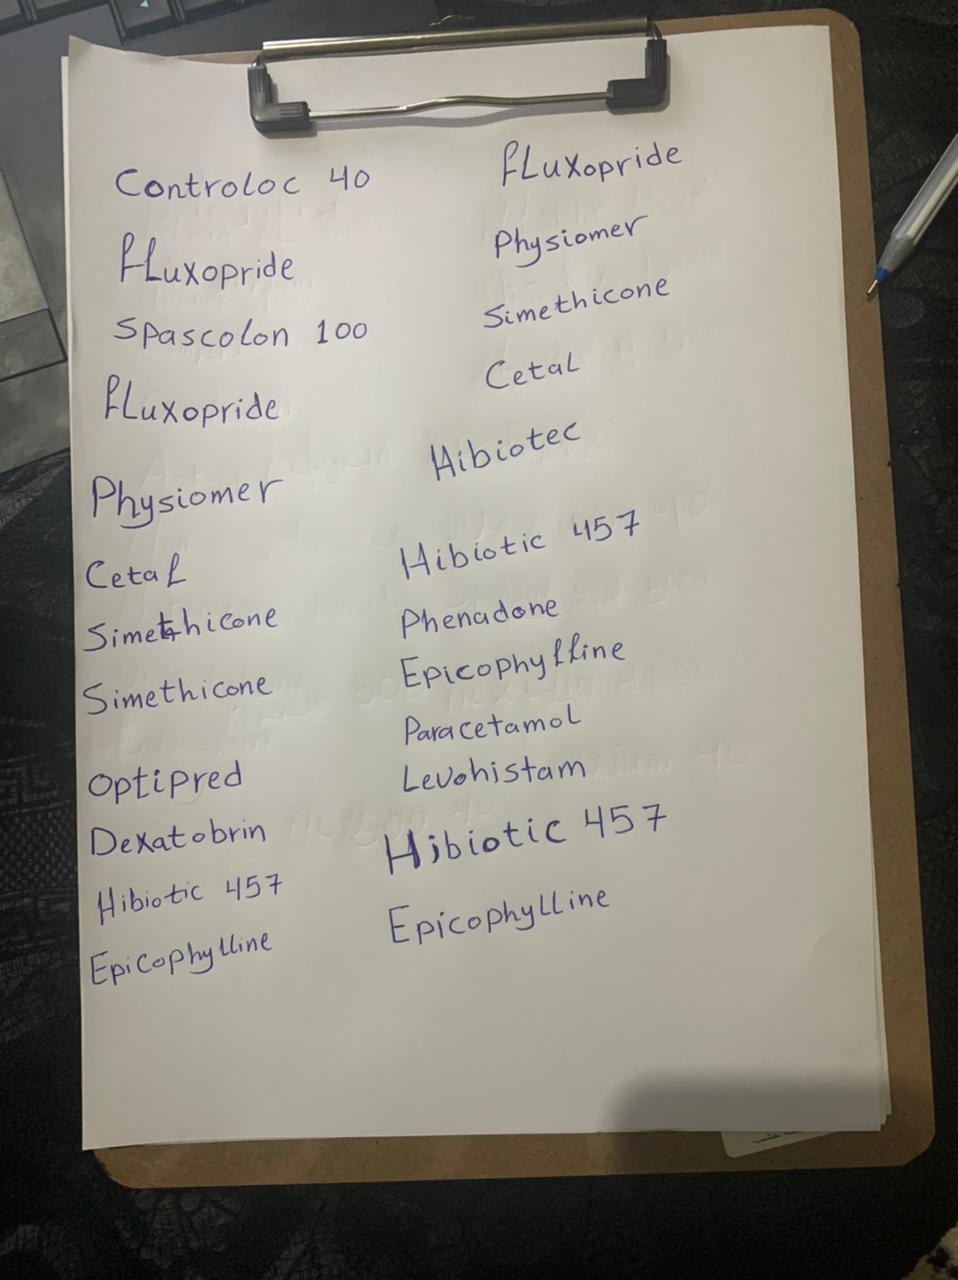 Controloc 40
Fluxopride
Spascolon 100
Fluxopride
Physiomer
Cetal
Simethicone
Simethicone
Optipred
Dexatobrin
Hibiotic 457
Epicophylline
Fluxopride
Physiomer
Simethicone
Cetal
Hibiotec
Hibiotic 457
Phenadone
Epicophylline
Paracetamol
Levohistam
Hibiotic 457
Epicophylline